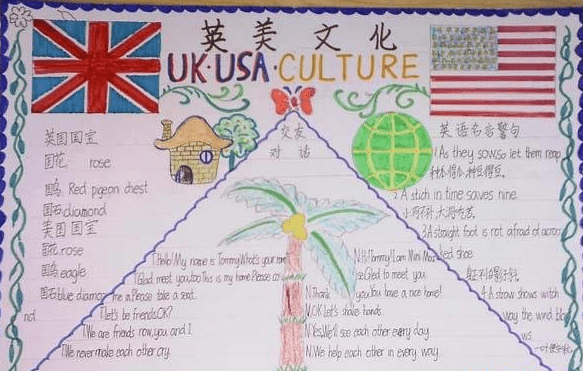 英美文化
UK·USA·CULTURE
英国国宝
国花 rose
国鸟 Red pigeon chest
国石 diamond
美国国宝
国花 rose
国鸟 eagle
国石 blue diamond
交友
对话
T.Hello! My name is Tommy What's your name
T.Glad meet you.too This is my home. Please co
me in. Please take a seat.
T.let's be friends.OK?
T.We are friends now, you and I
T.We never make each other cry.
N.Hi Tommy I am Mini
Glad to meet you
N.Thank you You have a nice home!
N.OK Let's shake hands.
N.Yes.We'll see each other every day.
N.We help each other in every way.
英语名言警句
1 As they sow.so let them reap
种瓜得瓜,种豆得豆。
2 A stich in time saves nine.
小洞不补,大洞吃苦。
3 A straight foot is not afraid of a
ked shoe.
4 A straw shows witch
way the wind blo
ws